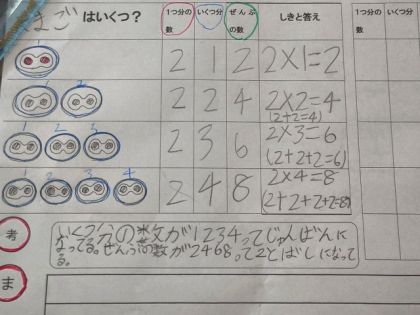 まごはいくつ？ 1つ分の数 いくつ分 ぜんぶの数 しきと答え 1つ分の数 いくつ分
1
2 1 2 2×1=2
1 2
2 2 4 2×2=4
(2+2=4)
1 2 3
2 3 6 2×3=6
(2+2+2=6)
1 2 3 4
2 4 8 2×4=8
(2+2+2+2=8)
考
いくつ分の数が1234ってじゅんばんに
なってる。ぜんぶの数が2468って2とばしになって
る。
ま